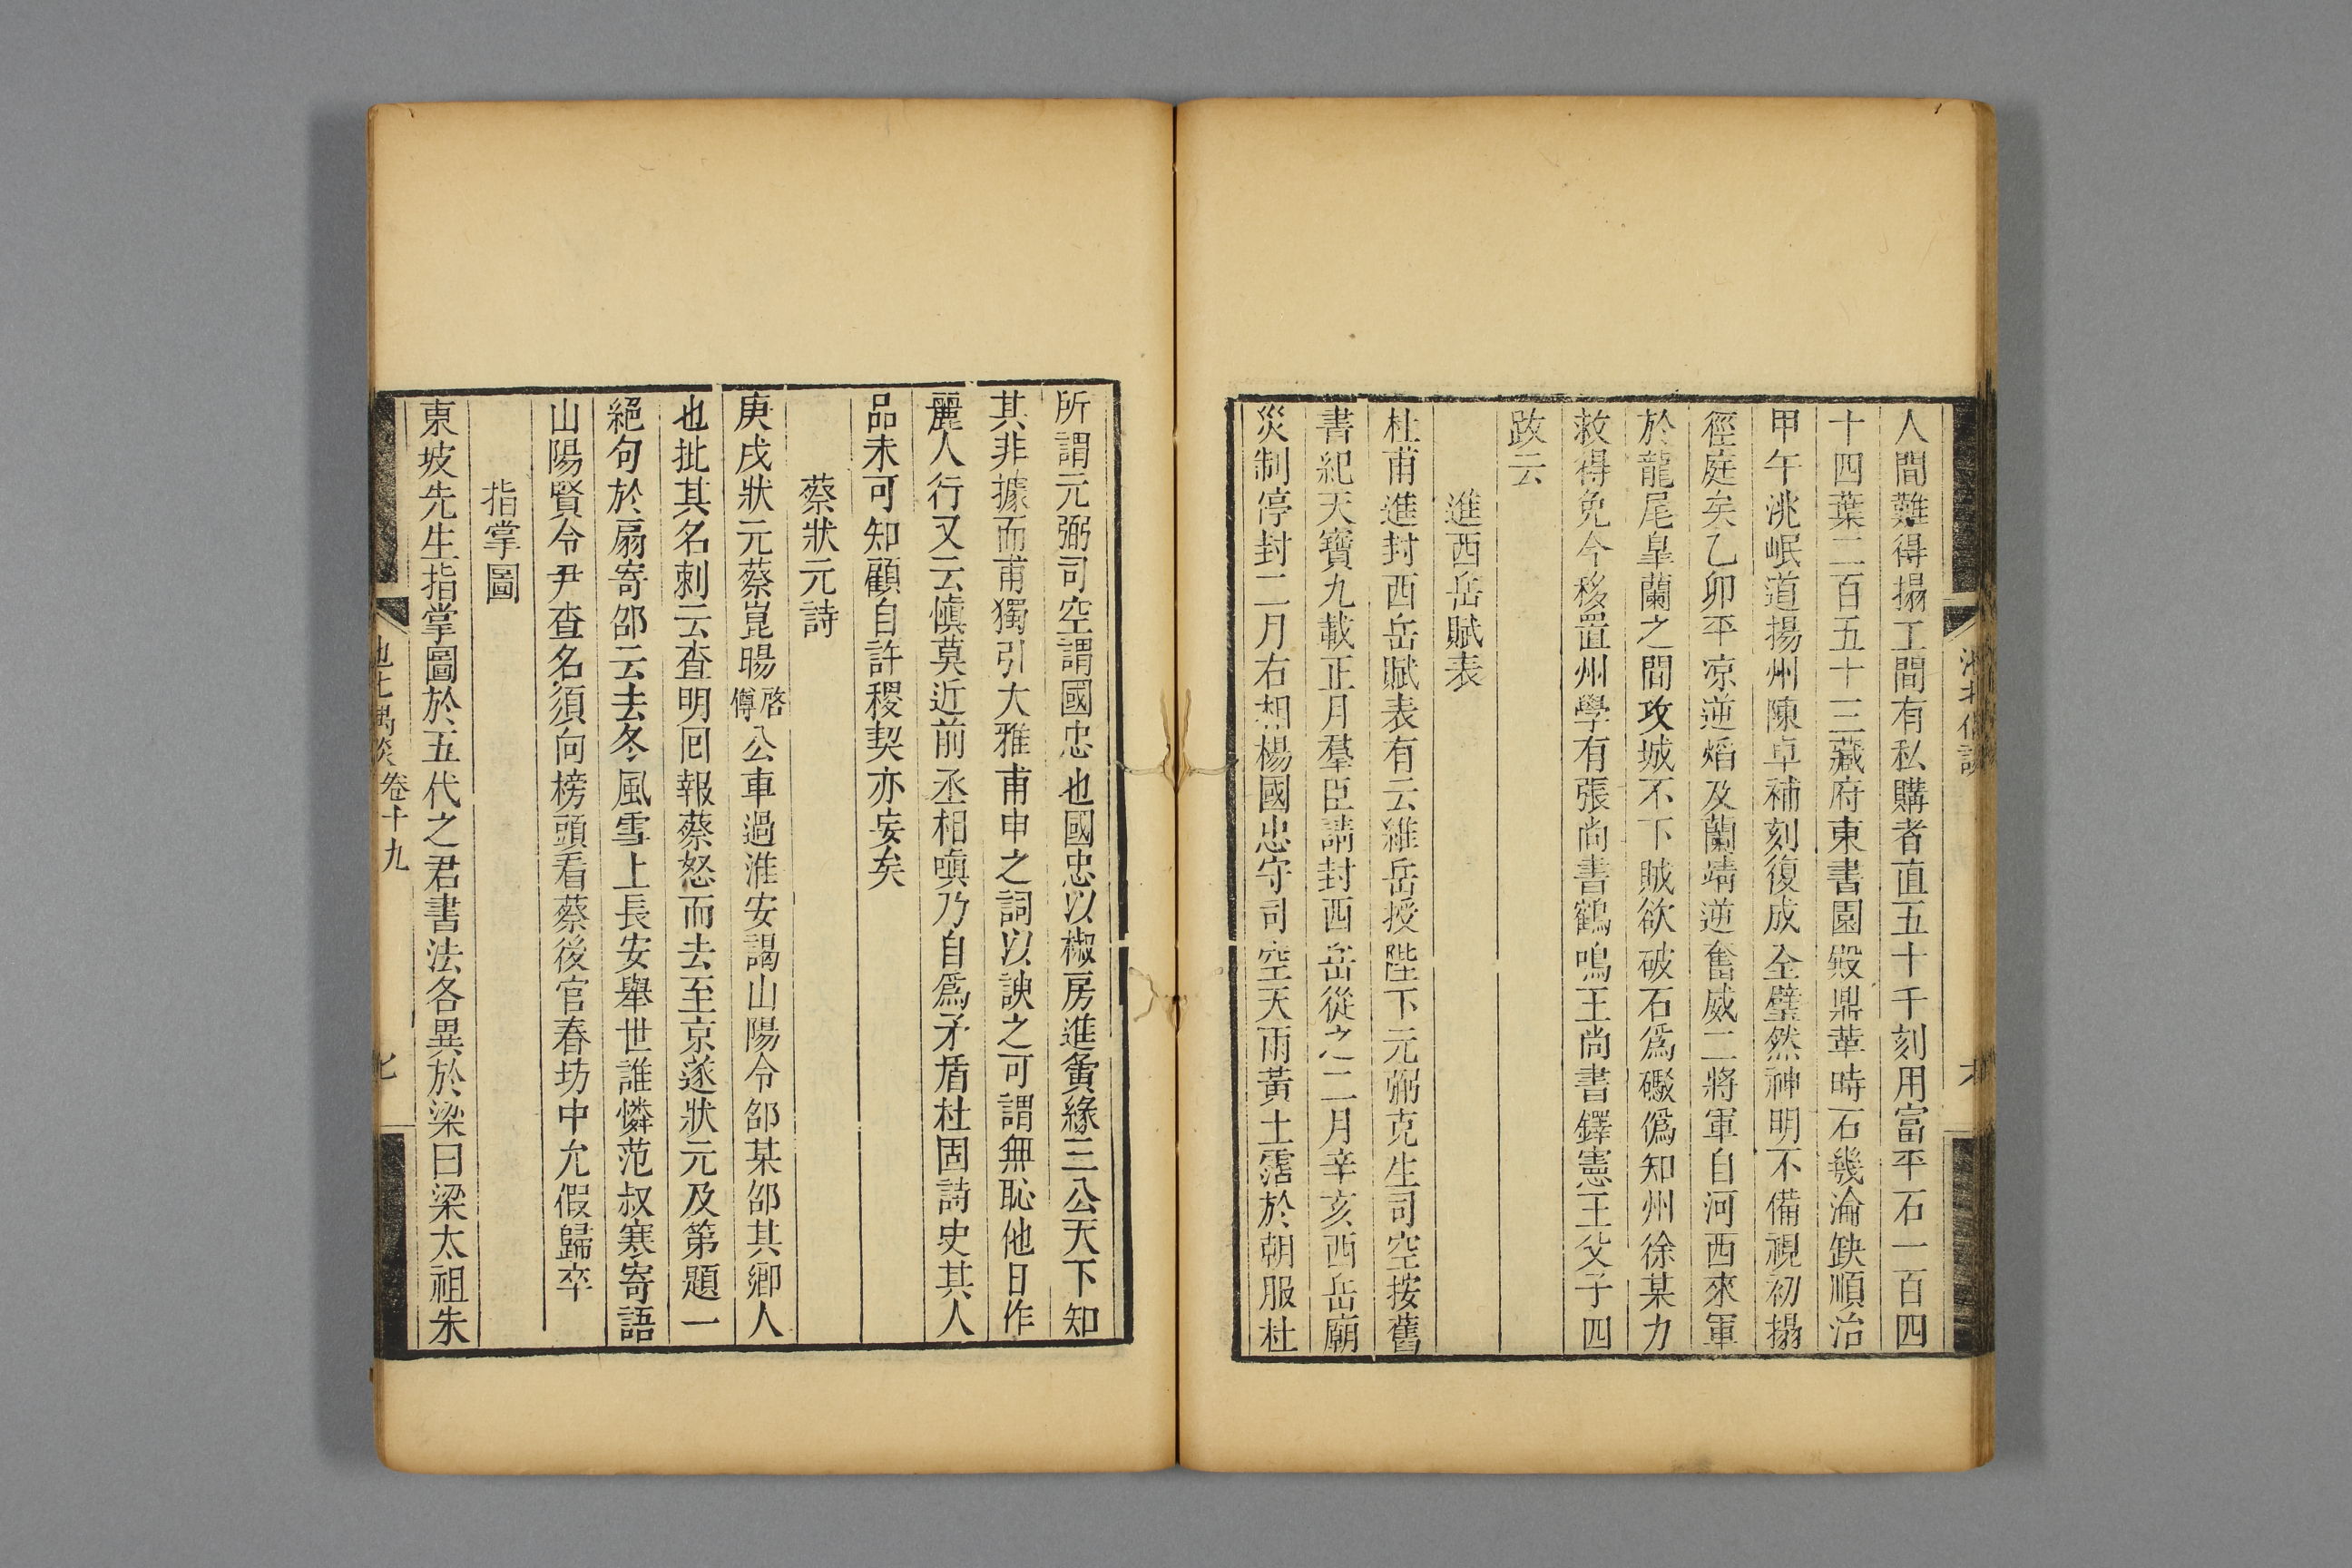 人間難得搨工間有私購者直五十千刻用富平石一百四
十四葉二百五十三藏府東書園毀鼎革時石幾淪缺順治
甲午洮岷道揚州陳卓補刻復成全璧然神明不備視初搨
徑庭矣乙卯平凉逆熖及蘭靖逆奮威二將軍自河西來軍
於龍尾臯蘭之間攻城不下賊欲破石爲礮僞知州徐某力
救得免今移置州學有張尚書鶴鳴王尚書鐸憲王父子四
跋云
進西岳賦表
杜甫進封西岳賦表有云維岳授陛下元弼克生司空按舊
書紀天寶九載正月羣臣請封西岳從之二月辛亥西岳廟
災制停封二月右相楊國忠守司空天雨黃土霑於朝服杜
所謂元弼司空謂國忠也國忠以椒房進夤緣三公天下知
其非據而甫獨引大雅甫申之詞以諛之可謂無恥他日作
麗人行又云愼莫近前丞相嗔乃自爲矛盾杜固詩史其人
品未可知顧自許稷契亦妄矣
蔡狀元詩
庚戌狀元蔡崑暘啓僔公車過淮安謁山陽令邵某邵其鄉人
也批其名刺云查明囘報蔡怒而去至京遂狀元及第題一
絕句於扇寄邵云去冬風雪上長安舉世誰憐范叔寒寄語
山陽賢令尹查名須向榜頭看蔡後官春坊中允假歸卒
指掌圖
東坡先生指掌圖於五代之君書法各異於梁曰梁太祖朱
卷十九